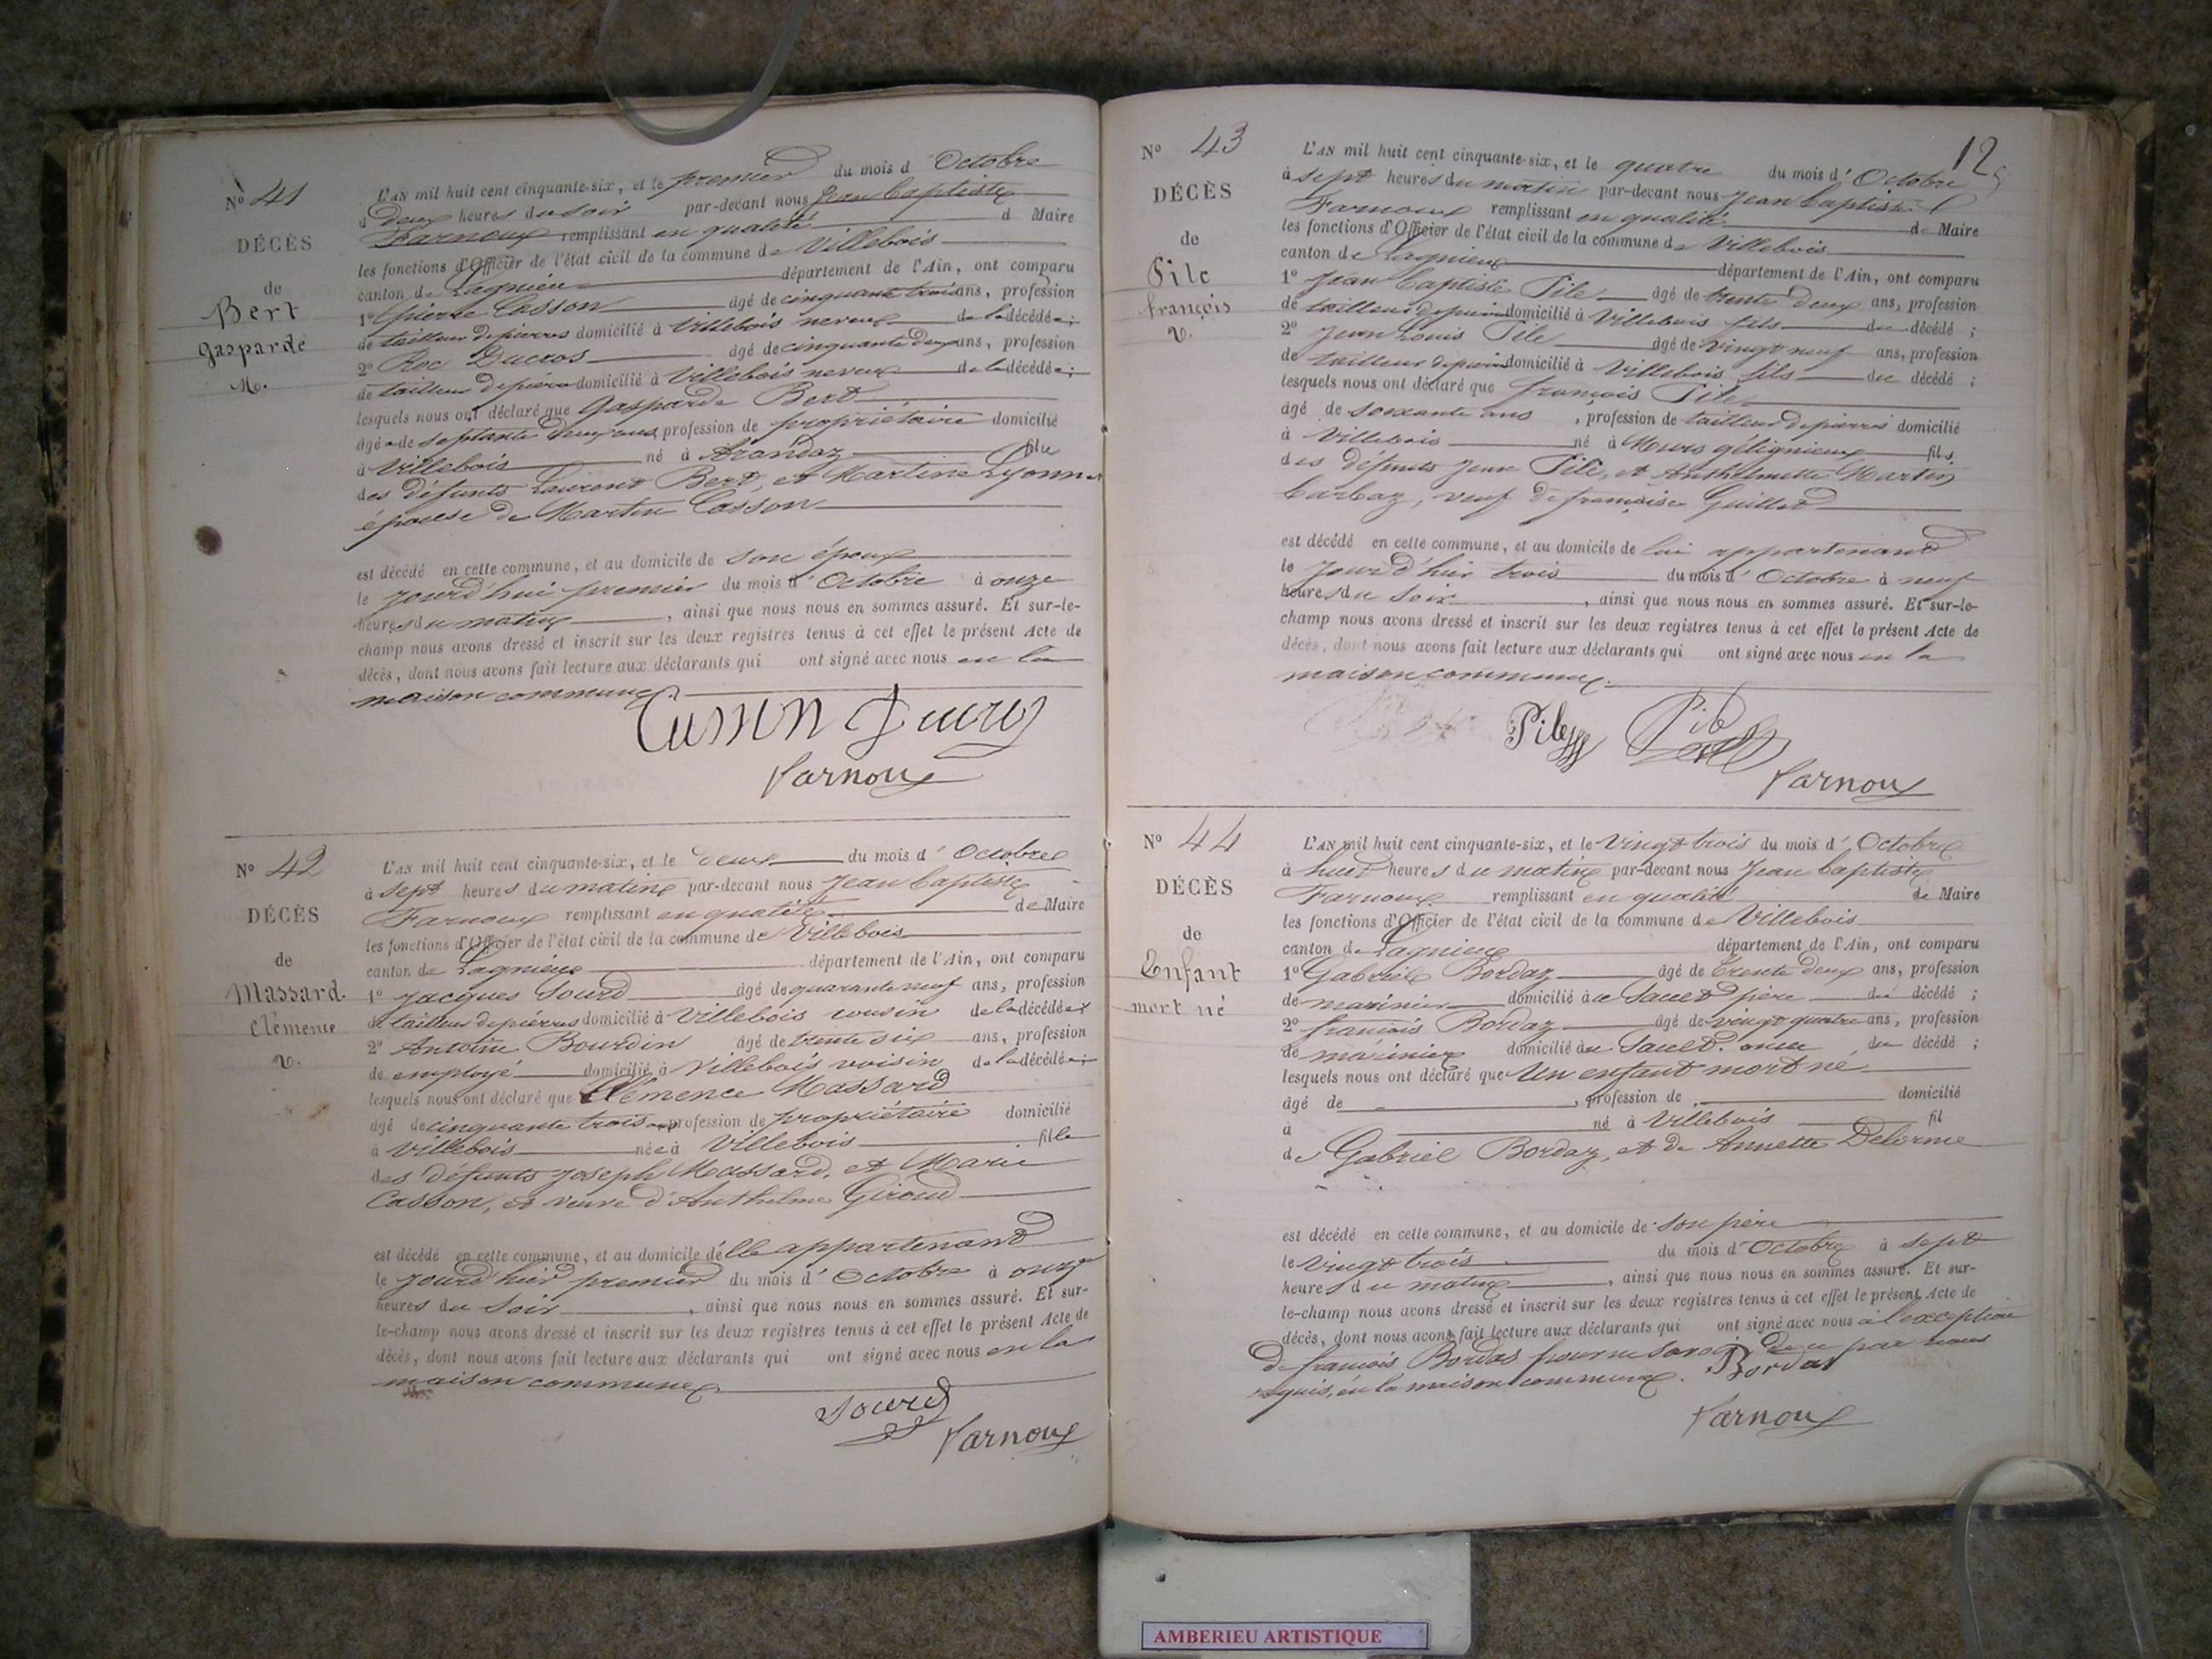 N° 41
DÉCÈS
de
Bert
gasparde
Me.
L'AN mil huit cent cinquante-six, et le premier du mois d'Octobre
à deux heures du soir par-devant nous Jean baptiste
Farnoux remplissant en qualité d Maire
les fonctions d'Officier de l'état civil de la commune de Villebois
canton de Lagnieu département de l'Ain, ont comparu
1° pierre Casson âgé de cinquante trois ans, profession
de tailleur de pierres domicilié à Villebois neveu de la décédée;
2° Roc Ducros âgé de cinquante deux ans, profession
de tailleur de pierres domicilié à Villebois neveu de la décédée;
lesquels nous ont déclaré que Gasparde Bert
âgée de septante deux ans profession de propriétaire domicilié
à Villebois né à Arandaz fille
des défunts Laurent Bert, et Martine Lyonne
épouse de Martin Casson
est décédé en cette commune, et au domicile de son époux
le jourd'hui premier du mois d'Octobre à onze
heures du matin, ainsi que nous nous en sommes assuré. Et sur-le-
champ nous avons dressé et inscrit sur les deux registres tenus à cet effet le présent Acte de
décès, dont nous avons fait lecture aux déclarants qui ont signé avec nous en la
maison commune.
Farnoux
N° 42
DÉCÈS
de
Massard.
Clémence
v.
L'AN mil huit cent cinquante-six, et le deux du mois d'Octobre
à sept heures du matin par-devant nous Jean baptiste
Farnoux remplissant en qualité de Maire
les fonctions d'Officier de l'état civil de la commune de Villebois
canton de Lagnieu département de l'Ain, ont comparu
1° Jacques Sourd âgé de quarante neuf ans, profession
de tailleur de pierres domicilié à Villebois cousin de la décédée
2° Antoine Bourdin âgé de trente six ans, profession
de employé domicilié à Villebois voisin de la décédée;
lesquels nous ont déclaré que Clémence Massard
âgé de cinquante trois ans profession de propriétaire domicilié
à Villebois née à Villebois fille
des défunts Joseph Massard, et Marie
Casson, et veuve d'Anthelme Giroud
est décédé en cette commune, et au domicile d'elle appartenant
le jourd'hier premier du mois d'Octobre à onze
heures du soir, ainsi que nous nous en sommes assuré. Et sur-
le-champ nous avons dressé et inscrit sur les deux registres tenus à cet effet le présent Acte de
décès, dont nous avons fait lecture aux déclarants qui ont signé avec nous en la
maison commune.
Sourd
Farnoux
12
N° 43
DÉCÈS
de
Pile
françois
v.
L'AN mil huit cent cinquante-six, et le quatre du mois d'Octobre
à sept heures du matin par-devant nous Jean baptiste
Farnoux remplissant en qualité de Maire
les fonctions d'Officier de l'état civil de la commune de Villebois
canton de Lagnieu département de l'Ain, ont comparu
1° Jean baptiste Pile âgé de trente deux ans, profession
de tailleur de pierres domicilié à Villebois fils du décédé;
2° Jean Louis Pile âgé de vingt neuf ans, profession
de tailleur de pierres domicilié à Villebois fils du décédé;
lesquels nous ont déclaré que françois Pile
âgé de soixante ans, profession de tailleur de pierres domicilié
à Villebois né à Murs gélignieux fils
des défunts Jean Pile, et Anthelmette Martin
barbaz, veuf de françoise Guillot
est décédé en cette commune, et au domicile de lui appartenant
le jourd'hier trois du mois d'Octobre à neuf
heures du soir, ainsi que nous nous en sommes assuré. Et sur-le-
champ nous avons dressé et inscrit sur les deux registres tenus à cet effet le présent Acte de
décès, dont nous avons fait lecture aux déclarants qui ont signé avec nous en la
maison commune.
Pile Pile
Farnoux
N° 44
DÉCÈS
de
Enfant
mort né
L'AN mil huit cent cinquante-six, et le vingt trois du mois d'Octobre
à huit heures du matin par-devant nous Jean baptiste
Farnoux remplissant en qualité de Maire
les fonctions d'Officier de l'état civil de la commune de Villebois
canton de Lagnieu département de l'Ain, ont comparu
1° Gabriel Bordaz âgé de trente deux ans, profession
de marinier domicilié au Sault père du décédé;
2° françois Bordaz âgé de vingt quatre ans, profession
de marinier domicilié au Sault. oncle du décédé;
lesquels nous ont déclaré que Un enfant mort né
âgé de, profession de domicilié
à né à Villebois fil
de Gabriel Bordaz, et de Annette Delorme
est décédé en cette commune, et au domicile de son père
le vingt trois du mois d'Octobre à sept
heures du matin, ainsi que nous nous en sommes assuré. Et sur-
le-champ nous avons dressé et inscrit sur les deux registres tenus à cet effet le présent Acte de
décès, dont nous avons fait lecture aux déclarants qui ont signé avec nous à l'exception
de françois Bordas pour ne savoir de ce par nous
requis, en la maison commune. Bordas
Farnoux
AMBERIEU ARTISTIQUE